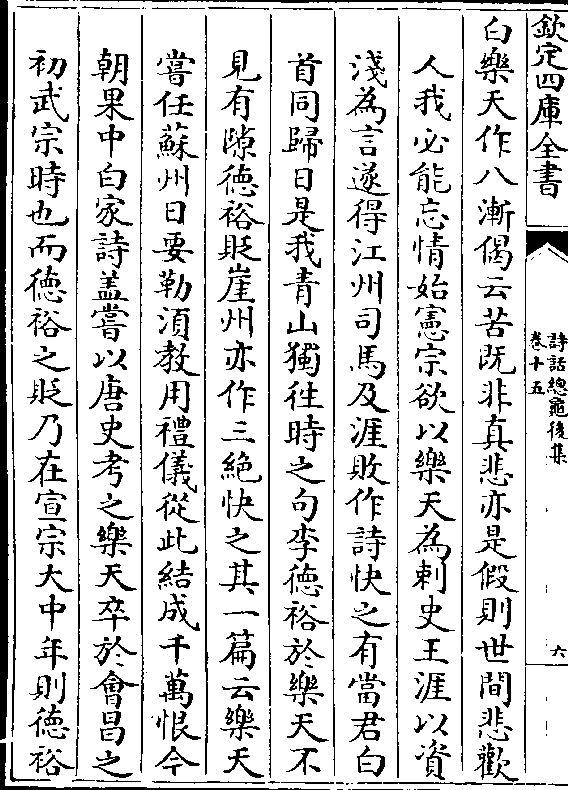 欽定四庫全書
詩話總龜後集
卷十五
六
白樂天作八漸偈云苦既非真悲亦是假則世間悲歡
人我必能忘情始憲宗欲以樂天為刺史王涯以資
淺為言遂得江州司馬及涯敗作詩快之有當君白
首同歸日是我青山獨往時之句李德裕於樂天不
見有隙德裕貶崖州亦作三絶快之其一篇云樂天
嘗任蘇州日要勒須教用禮儀從此結成千萬恨今
朝果中白家詩盖嘗以唐史考之樂天卒於會昌之
初武宗時也而德裕之貶乃在宣宗大中年則德裕